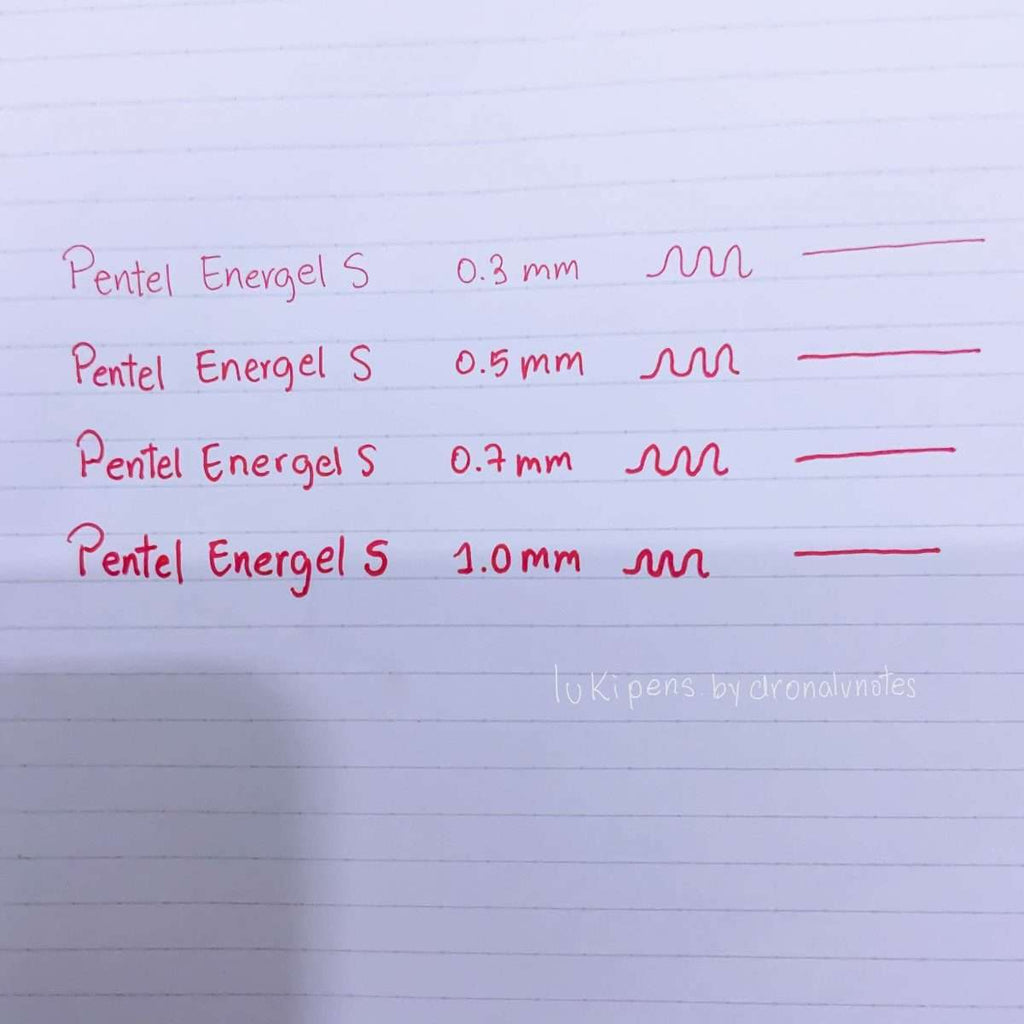 Pentel Energel S 0.3 mm
Pentel Energel S 0.5 mm
Pentel Energel S 0.7 mm
Pentel Energel S 1.0 mm
luKipens by dronalvnotes